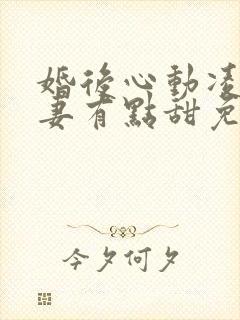 婚後心動凌
妻有點甜免
今夕何夕